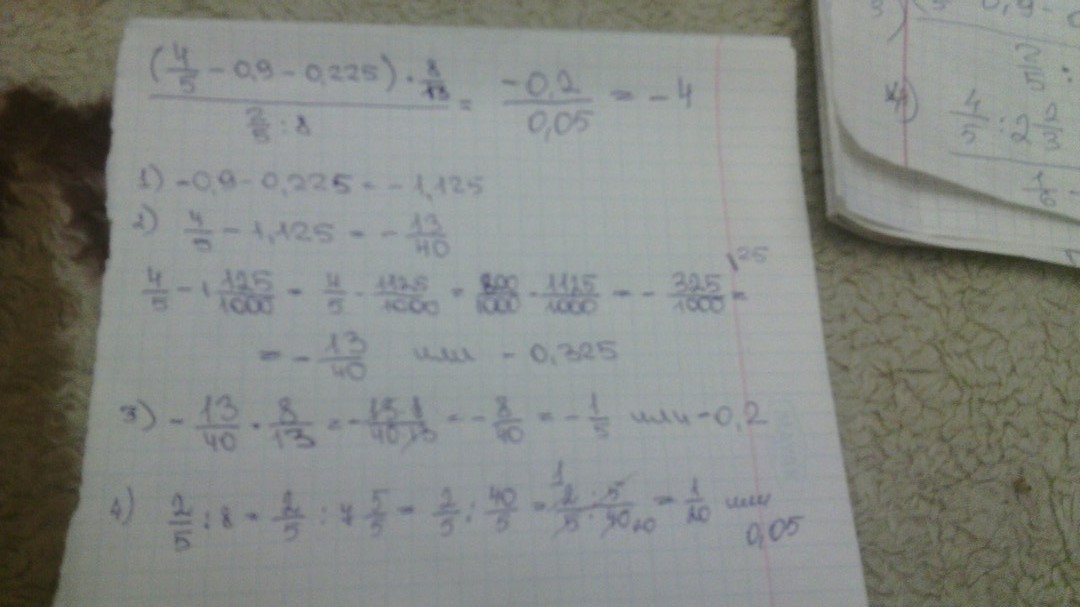 (4/5 - 0,9 - 0,225) · 8/13 / 2/5 : 8 = -0,2 / 0,05 = -4
1) -0,9 - 0,225 = -1,125
2) 4/5 - 1,125 = -13/40
4/5 - 1 125/1000 = 4/5 - 1125/1000 = 800/1000 - 1125/1000 = -325/1000 \25 =
= -13/40 или -0,325
3) -13/40 · 8/13 = -13·8/40·13 = -8/40 = -1/5 или -0,2
4) 2/5 : 8 = 2/5 : 7 5/5 = 2/5 : 40/5 = 2·5/5·40 = 1/20 или
0,05
3)
4)
4/5 : 2